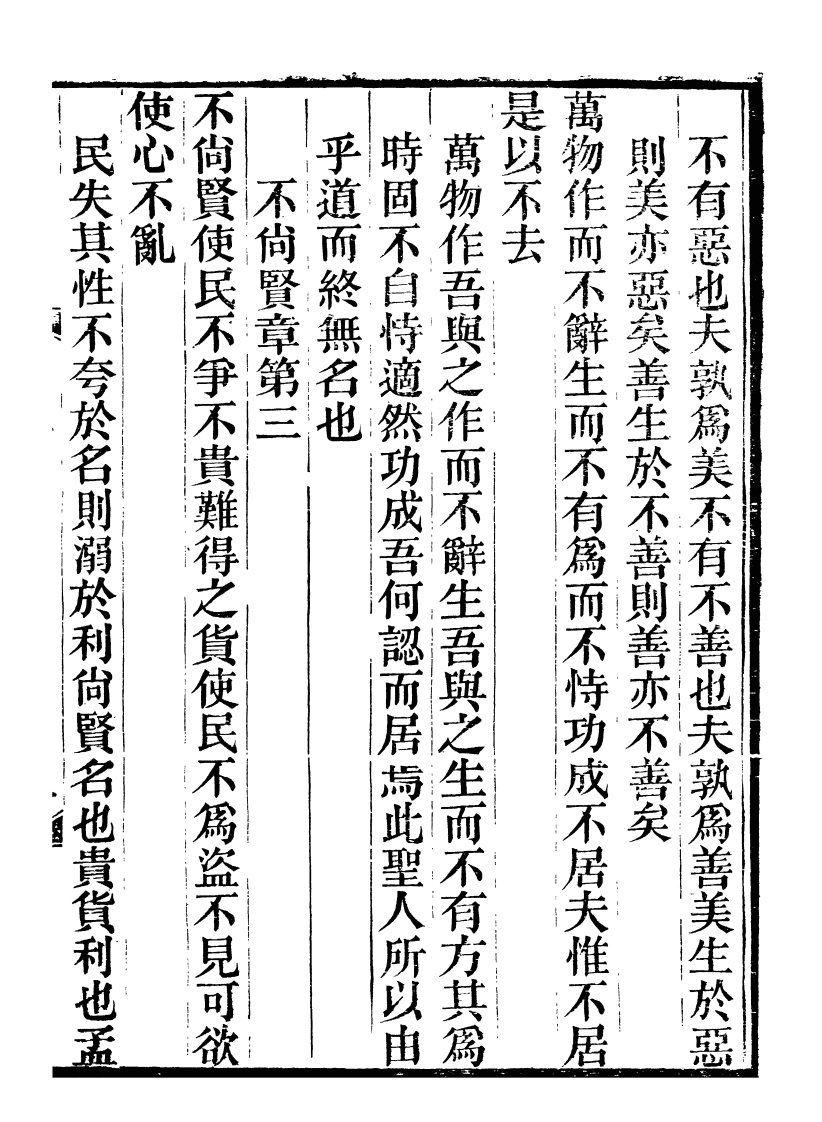 不有惡也夫孰爲美不有不善也夫孰爲善美生於惡
則美亦惡矣善生於不善則善亦不善矣
萬物作而不辭生而不有爲而不恃功成不居夫惟不居
是以不去
萬物作吾與之作而不辭生吾與之生而不有方其爲
時固不自恃適然功成吾何認而居焉此聖人所以由
乎道而終無名也
不尙賢章第三
不尙賢使民不爭不貴難得之貨使民不爲盜不見可欲
使心不亂
民失其性不夸於名則溺於利尙賢名也貴貨利也孟